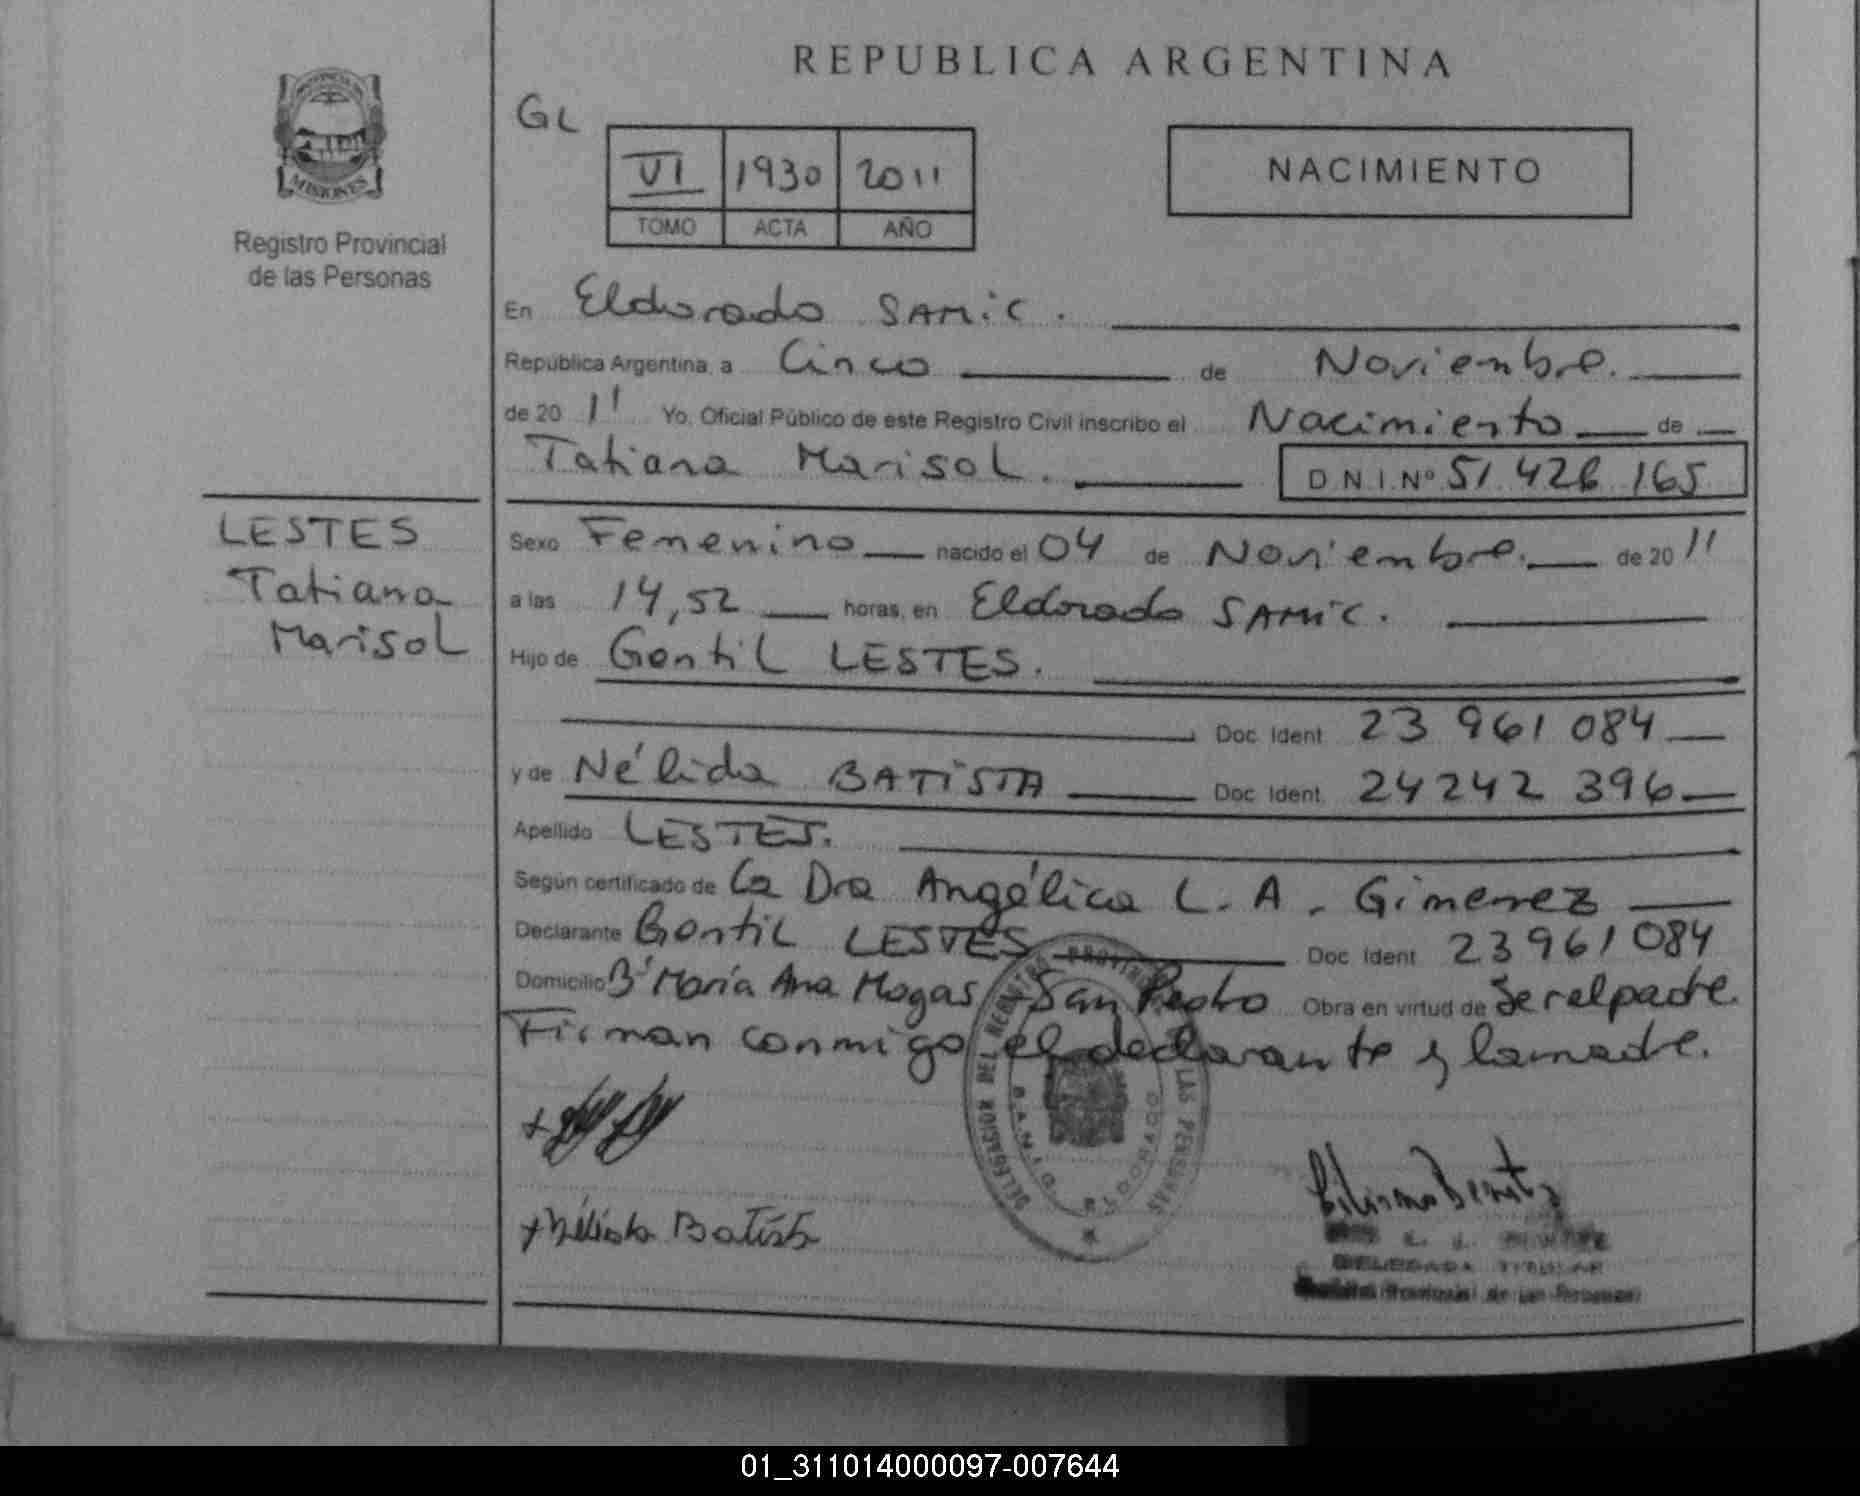 REPUBLICA ARGENTINA
PROVINCIA DE
MISIONES
Registro Provincial
de las Personas
GL
VI 1930 2011
TOMO ACTA AÑO
NACIMIENTO
En Eldorado SAMiC.
República Argentina, a Cinco de Noviembre.
de 20 11 Yo, Oficial Público de este Registro Civil inscribo el Nacimiento de
Tatiana Marisol. D.N.I.Nº 51.426.165
LESTES
Tatiana
Marisol
Sexo Femenino nacido el 04 de Noviembre. de 20 11
a las 14,52 horas, en Eldorado SAMiC.
Hijo de Gentil LESTES.
Doc. Ident. 23 961 084
y de Nélida BATiSTA Doc. Ident. 24242 396
Apellido LESTES.
Según certificado de La Dra Angélica L. A. Gimenez
Declarante Gentil LESTES Doc. Ident. 23961084
Domicilio Bº María Ana Mogas San Pedro Obra en virtud de Ser el padre.
Firman conmigo el declarante y la madre.
DELEGACION DEL REGISTRO PROVINCIAL DE LAS PERSONAS
ELDORADO
+
+ Nélida Batista
DELEGADA TITULAR
Provincial de las Personas
01_311014000097-007644